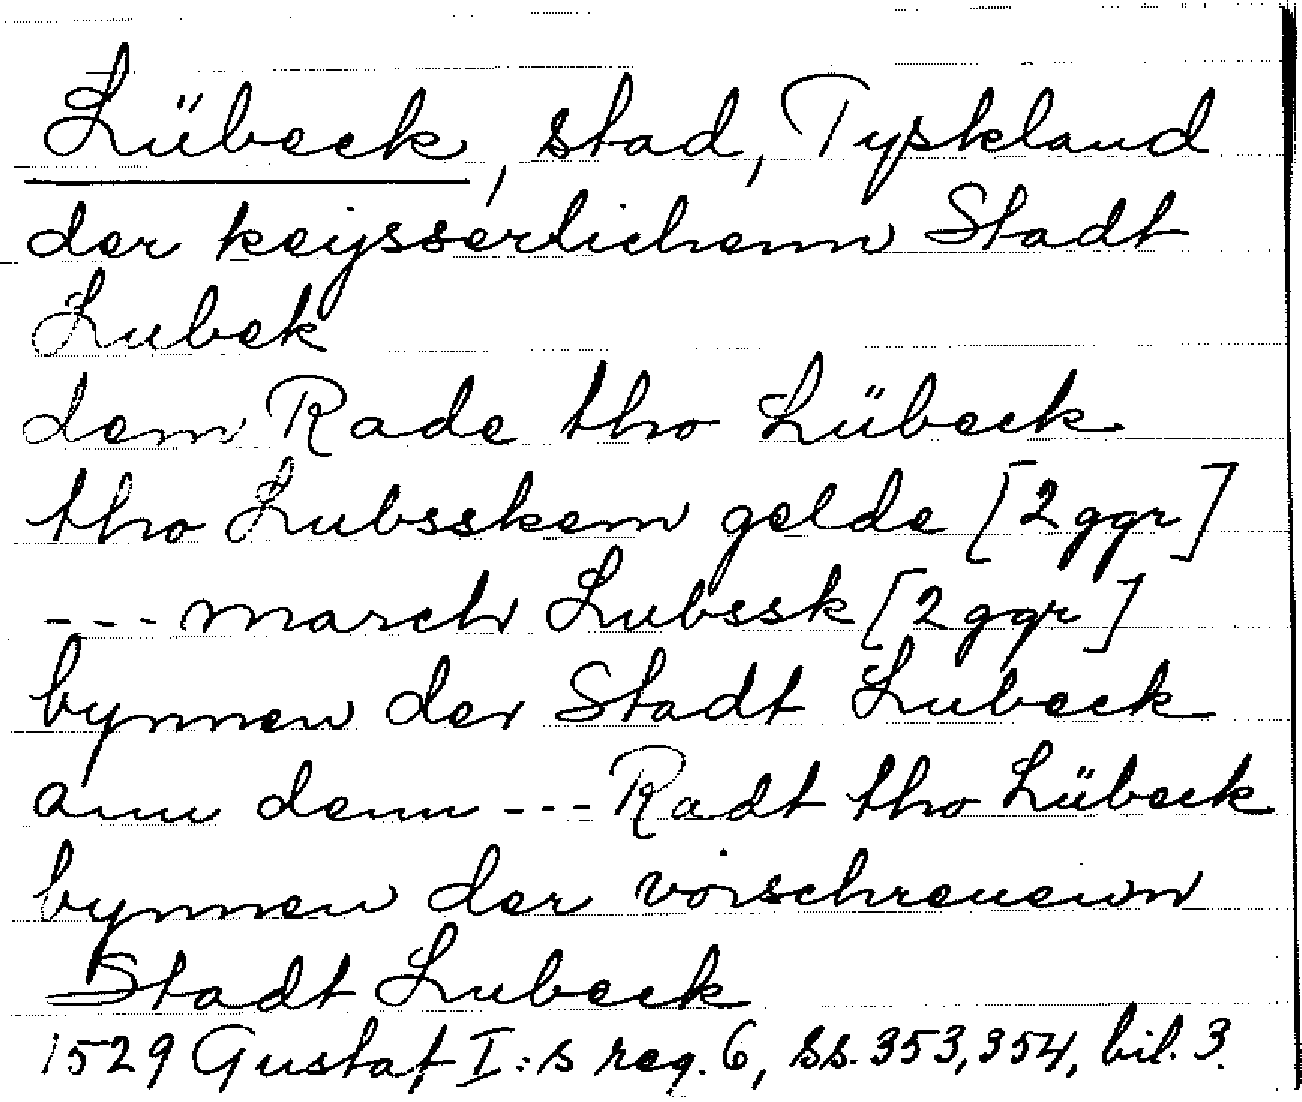 Lübeck, stad, Tyskland
der keysserlichenn Stadt
Lubek
dem Rade tho Lübeck
tho Lubsskem gelde [2 ggr]
--- march Lubssk [2 ggr]
bynnen der Stadt Lubeck
ann denn --- Radt tho Lübeck
bynnen der vorschreuenn
Stadt Lubeck
1529 Gustaf I:s reg. 6, ss. 353, 354, bil. 3.